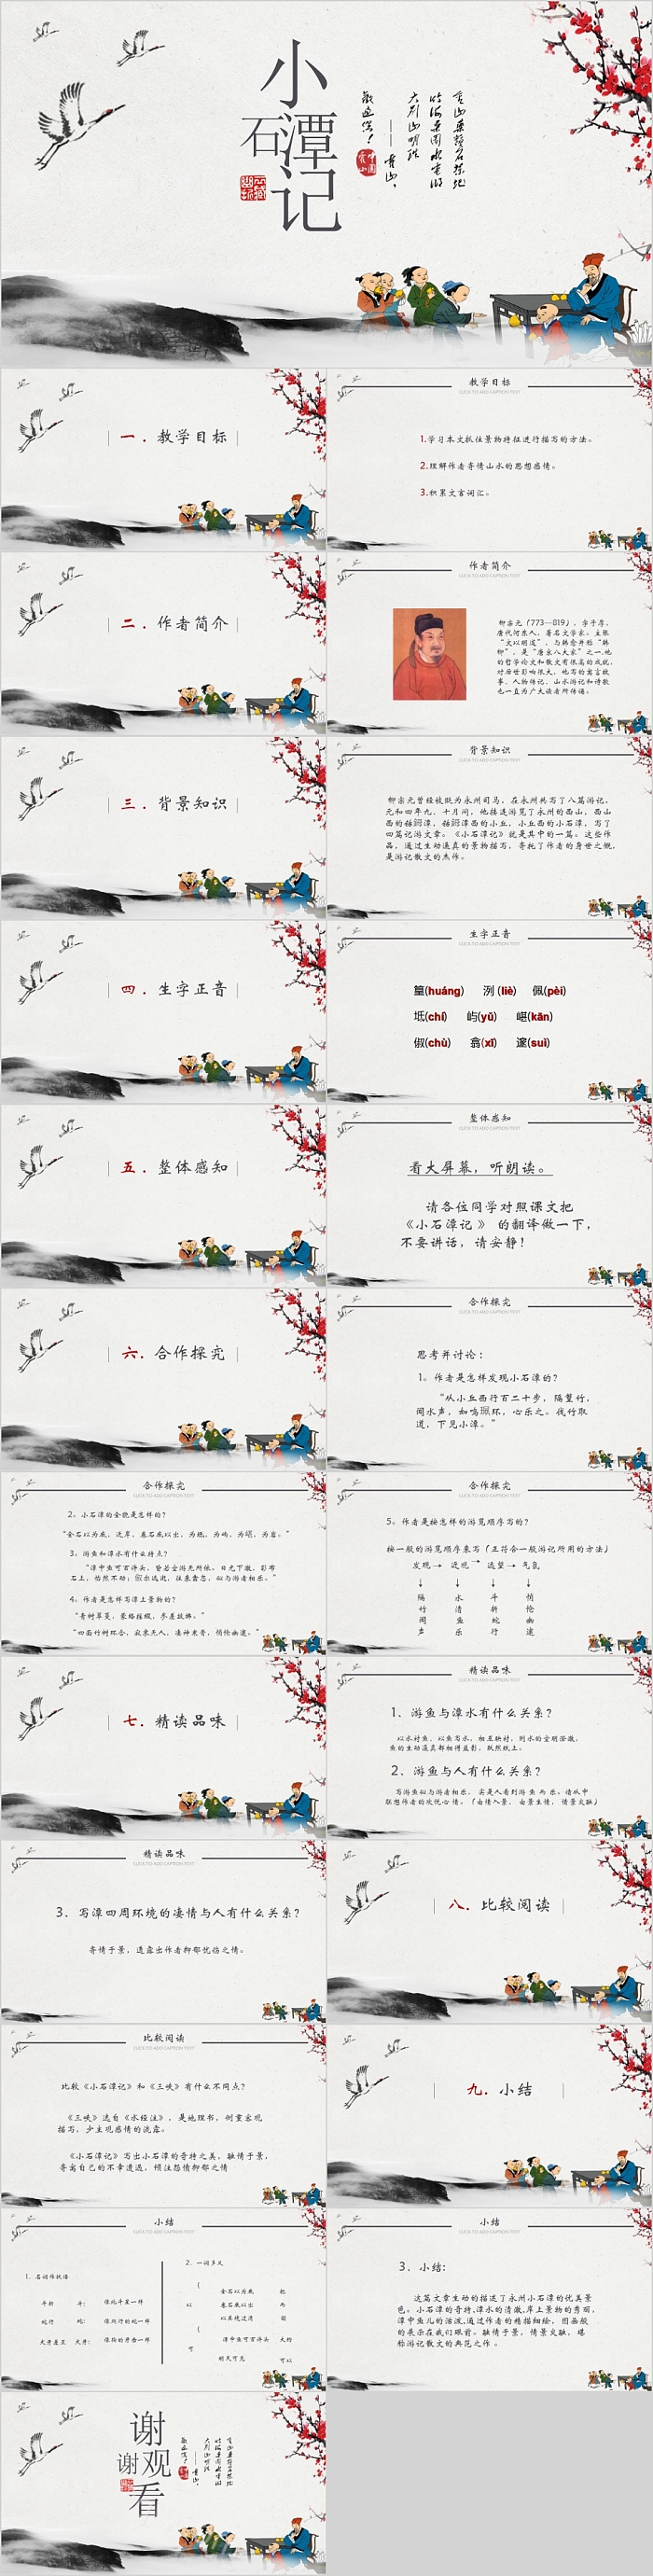 小
石潭
记
一．教学目标
教学目标
CLICK TO ADD CAPTION TEXT
1.学习本文抓住景物特征进行描写的方法。
2.理解作者寄情山水的思想感情。
3.积累文言词汇。
二．作者简介
作者简介
CLICK TO ADD CAPTION TEXT
柳宗元（773—819），字子厚，
唐代河东人，著名文学家。主张
“文以明道”，与韩愈并称“韩
柳”，是“唐宋八大家”之一.他
的哲学论文和散文有很高的成就，
对后世影响很大，他写的寓言故
事、人物传记、山水游记和诗歌
也一直为广大读者所传诵。
三．背景知识
背景知识
CLICK TO ADD CAPTION TEXT
柳宗元曾经被贬为永州司马，在永州共写了八篇游记，
元和四年九、十月间，他接连游览了永州的西山，西山
西的钴鉧潭，钴鉧潭西的小丘，小丘西的小石潭，写了
四篇记游文章。《小石潭记》就是其中的一篇。这些作
品，通过生动逼真的景物描写，寄托了作者的身世之慨，
是游记散文的杰作。
四．生字正音
生字正音
CLICK TO ADD CAPTION TEXT
篁(huáng) 洌(liè) 佩(pèi)
坻(chí) 屿(yǔ) 嵁(kān)
俶(chù) 翕(xī) 邃(suì)
五．整体感知
整体感知
CLICK TO ADD CAPTION TEXT
看大屏幕，听朗读。
请各位同学对照课文把
《小石潭记 》 的翻译做一下，
不要讲话，请安静！
六．合作探究
合作探究
CLICK TO ADD CAPTION TEXT
思考并讨论：
1。作者是怎样发现小石潭的？
“从小丘西行百二十步，隔篁竹，
闻水声，如鸣珮环，心乐之。伐竹取
道，下见小潭。”
合作探究
CLICK TO ADD CAPTION TEXT
2。小石潭的全貌是怎样的？
“全石以为底，近岸，卷石底以出，为坻，为屿，为嵁，为岩。”
3。游鱼和潭水有什么特点？
“潭中鱼可百许头，皆若空游无所依。日光下澈，影布
石上，怡然不动；俶尔远逝，往来翕忽，似与游者相乐。”
4。作者是怎样写潭上景物的？
“青树翠蔓，蒙络摇缀，参差披拂。”
“四面竹树环合，寂寥无人，凄神寒骨，悄怆幽邃。”
合作探究
CLICK TO ADD CAPTION TEXT
5。作者是按怎样的游览顺序写的？
按一般的游览顺序来写（正符合一般游记所用的方法）
发现→ 近观→ 远望→ 气氛
↓ ↓ ↓ ↓
隔 水 斗 悄
竹 清 折 怆
闻 鱼 蛇 幽
声 乐 行 邃
七．精读品味
精读品味
CLICK TO ADD CAPTION TEXT
1、游鱼与潭水有什么关系？
以水衬鱼、以鱼写水，相互映衬，则水的空明澄澈，
鱼的生动逼真都相得益彰，跃然纸上。
2、游鱼与人有什么关系？
写游鱼似与游者相乐，实是人看到游鱼而乐。请从中
联想作者的欢悦心情。（由情入景，由景生情，情景交融）
精读品味
CLICK TO ADD CAPTION TEXT
3、写潭四周环境的凄情与人有什么关系？
寄情于景，透露出作者抑郁忧伤之情。
八．比较阅读
比较阅读
CLICK TO ADD CAPTION TEXT
比较《小石潭记》和《三峡》有什么不同点？
《三峡》选自《水经注》，是地理书，侧重客观
描写，少主观感情的流露。
《小石潭记》写出小石潭的奇特之美，融情于景，
寄寓自己的不幸遭遇，倾注怨愤抑郁之情
九．小结
小结
CLICK TO ADD CAPTION TEXT
1、名词作状语
斗折 斗： 像北斗星一样
蛇行 蛇： 像爬行的蛇一样
犬牙差互 犬牙： 像狗的牙齿一样
2、一词多义
以
全石以为底 把
卷石底以出 而
以其境过清
可
潭中鱼可百许头 大约
明灭可见 可以
小结
CLICK TO ADD CAPTION TEXT
3、小结：
这篇文章生动的描述了永州小石潭的优美景
色。小石潭的奇特,潭水的清澈,岸上景物的秀丽，
潭中鱼儿的活泼,通过作者的精描细绘，图画般
的展示在我们眼前。融情于景，情景交融，堪
称游记散文的典范之作 。
谢
谢观
看